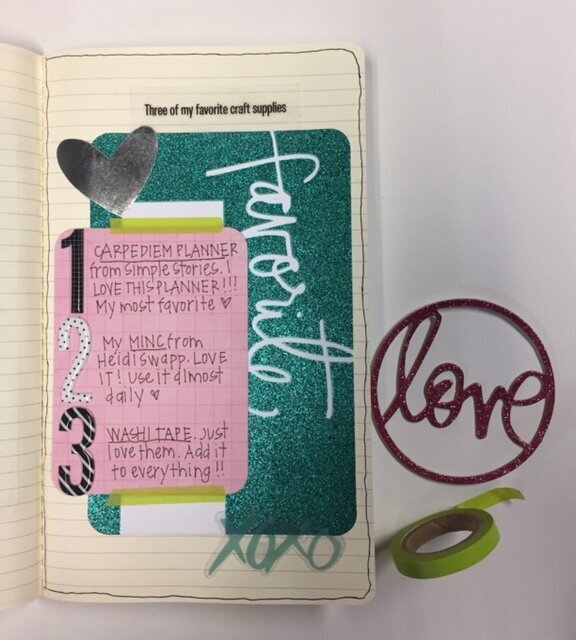 Three of my favorite craft supplies
favorite
1
CARPEDIEM PLANNER
from simple stories. I
LOVE THIS PLANNER!!!
My most favorite ♡
2
My MINC from
Heidi swapp. LOVE
IT! Use it almost
daily ♡
3
WASHI TAPE. Just
love them. Add it
to everything!!
love
xoxo